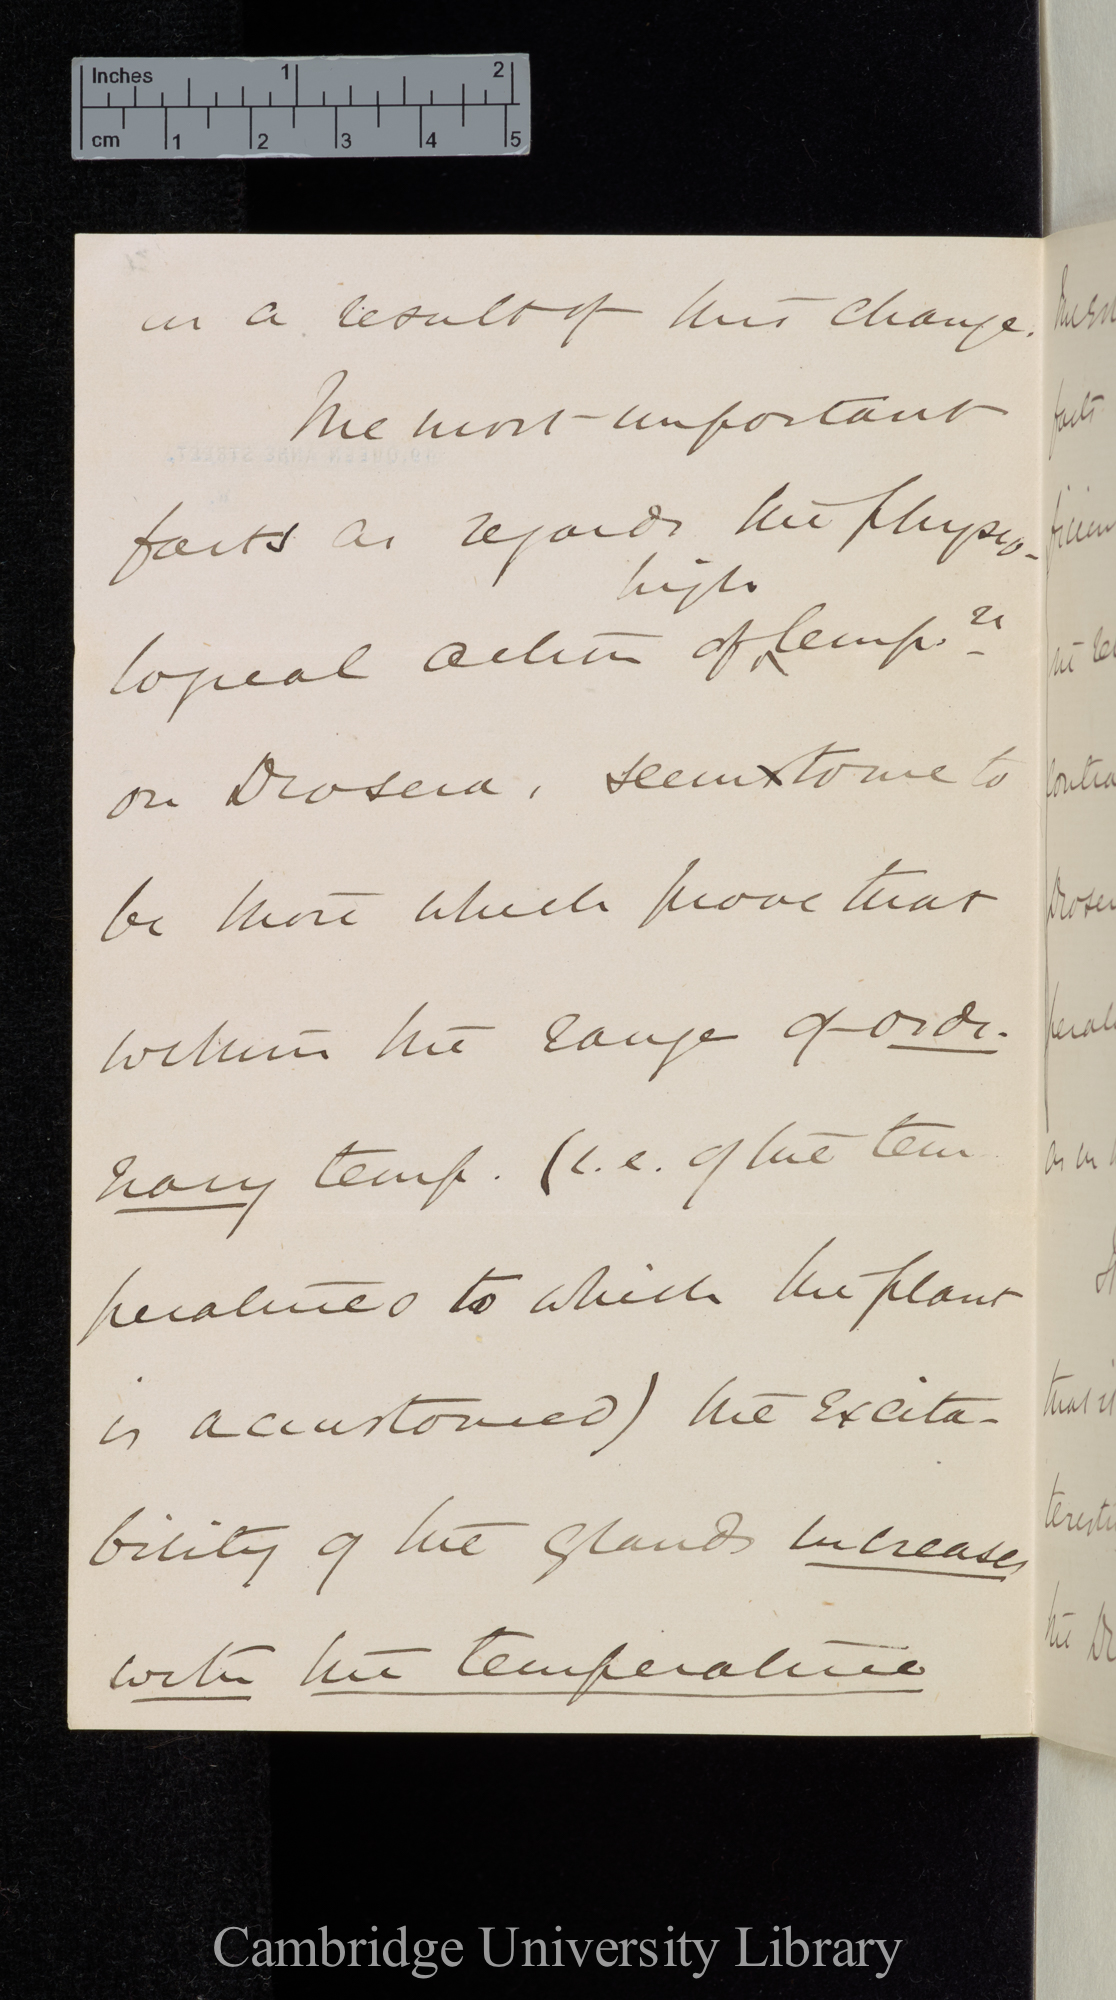 Inches 1 2
cm 1 2 3 4 5
is a result of this change.
The most important
facts as regards the physio-
high
logical action of temp.re
on Drosera, seems to me to
be those which prove that
within the range of ordi-
nary temp. (i.e. of the tem
peratures to which the plant
is accustomed) the excita-
bility of the glands increases
with the temperature
Cambridge University Library